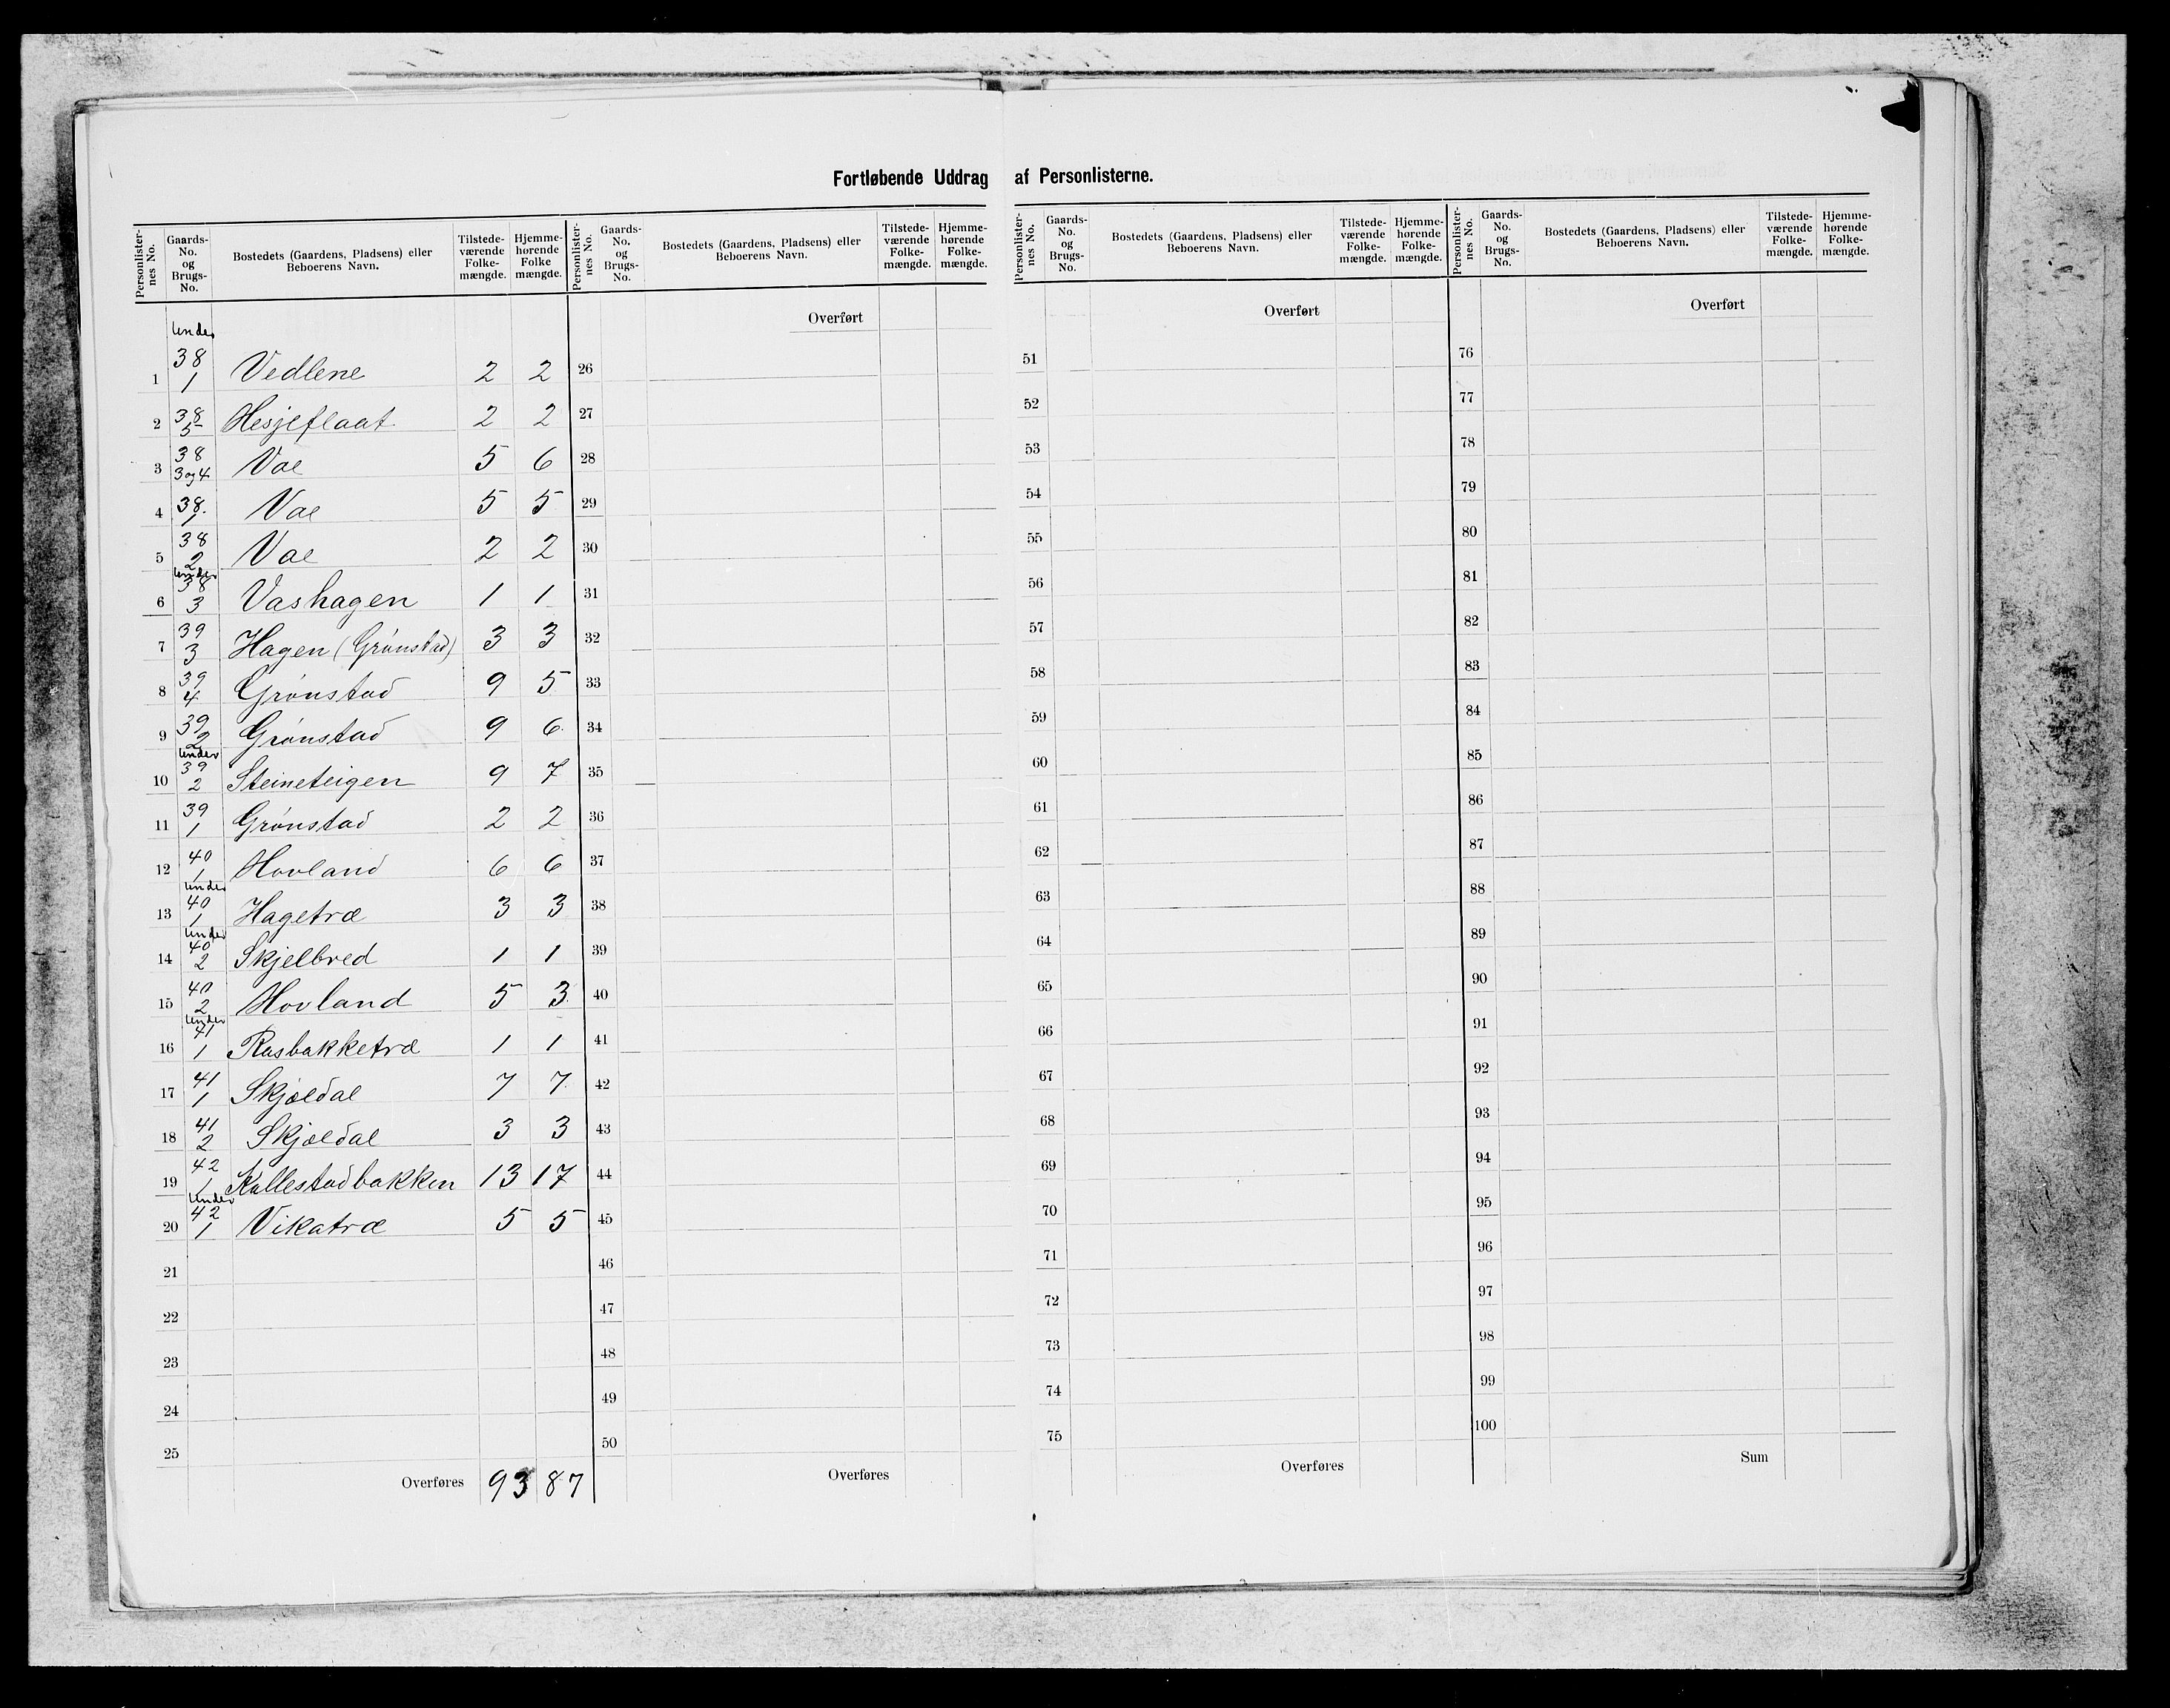 Fortløbende Uddrag af Personlisterne.
Personlisternes No. Gaards-No. og Brugs-No. Bostedets (Gaardens, Pladsens) eller Beboerens Navn. Tilstedeværende Folkemængde. Hjemmehørende Folke mængde.
Under
1 38/1 Vedlene 2 2
2 38/5 Hesjeflaat 2 2
3 38/3 og 4 Vae 5 6
4 38/1 Vae 5 5
5 38/2 Vae 2 2
6 Under 38/3 Vashagen 1 1
7 39/3 Hagen (Grønstad) 3 3
8 39/4 Grønstad 9 5
9 39/2 Grønstad 9 6
10 Under 39/2 Steineteigen 9 7
11 39/1 Grønstad 2 2
12 40/1 Hovland 6 6
13 Under 40/1 Hagetræ 3 3
14 Under 40/2 Skjelbred 1 1
15 40/2 Hovland 5 3
16 Under 41/1 Rasbakketræ 1 1
17 41/1 Skjældal 7 7
18 41/2 Skjældal 3 3
19 42/1 Kallestadbakken 13 17
20 Under 42/1 Vikatræ 5 5
21
22
23
24
25
Overføres 93 87
Personlisternes No. Gaards-No. og Brugs-No. Bostedets (Gaardens, Pladsens) eller Beboerens Navn. Tilstedeværende Folkemængde. Hjemmehørende Folkemængde.
Overført
26
27
28
29
30
31
32
33
34
35
36
37
38
39
40
41
42
43
44
45
46
47
48
49
50
Overføres
Personlisternes No. Gaards-No. og Brugs-No. Bostedets (Gaardens, Pladsens) eller Beboerens Navn. Tilstedeværende Folkemængde. Hjemmehørende Folkemængde.
Overført
51
52
53
54
55
56
57
58
59
60
61
62
63
64
65
66
67
68
69
70
71
72
73
74
75
Overføres
Personlisternes No. Gaards-No. og Brugs-No. Bostedets (Gaardens, Pladsens) eller Beboerens Navn. Tilstedeværende Folkemængde. Hjemmehørende Folkemængde.
Overført
76
77
78
79
80
81
82
83
84
85
86
87
88
89
90
91
92
93
94
95
96
97
98
99
100
Sum